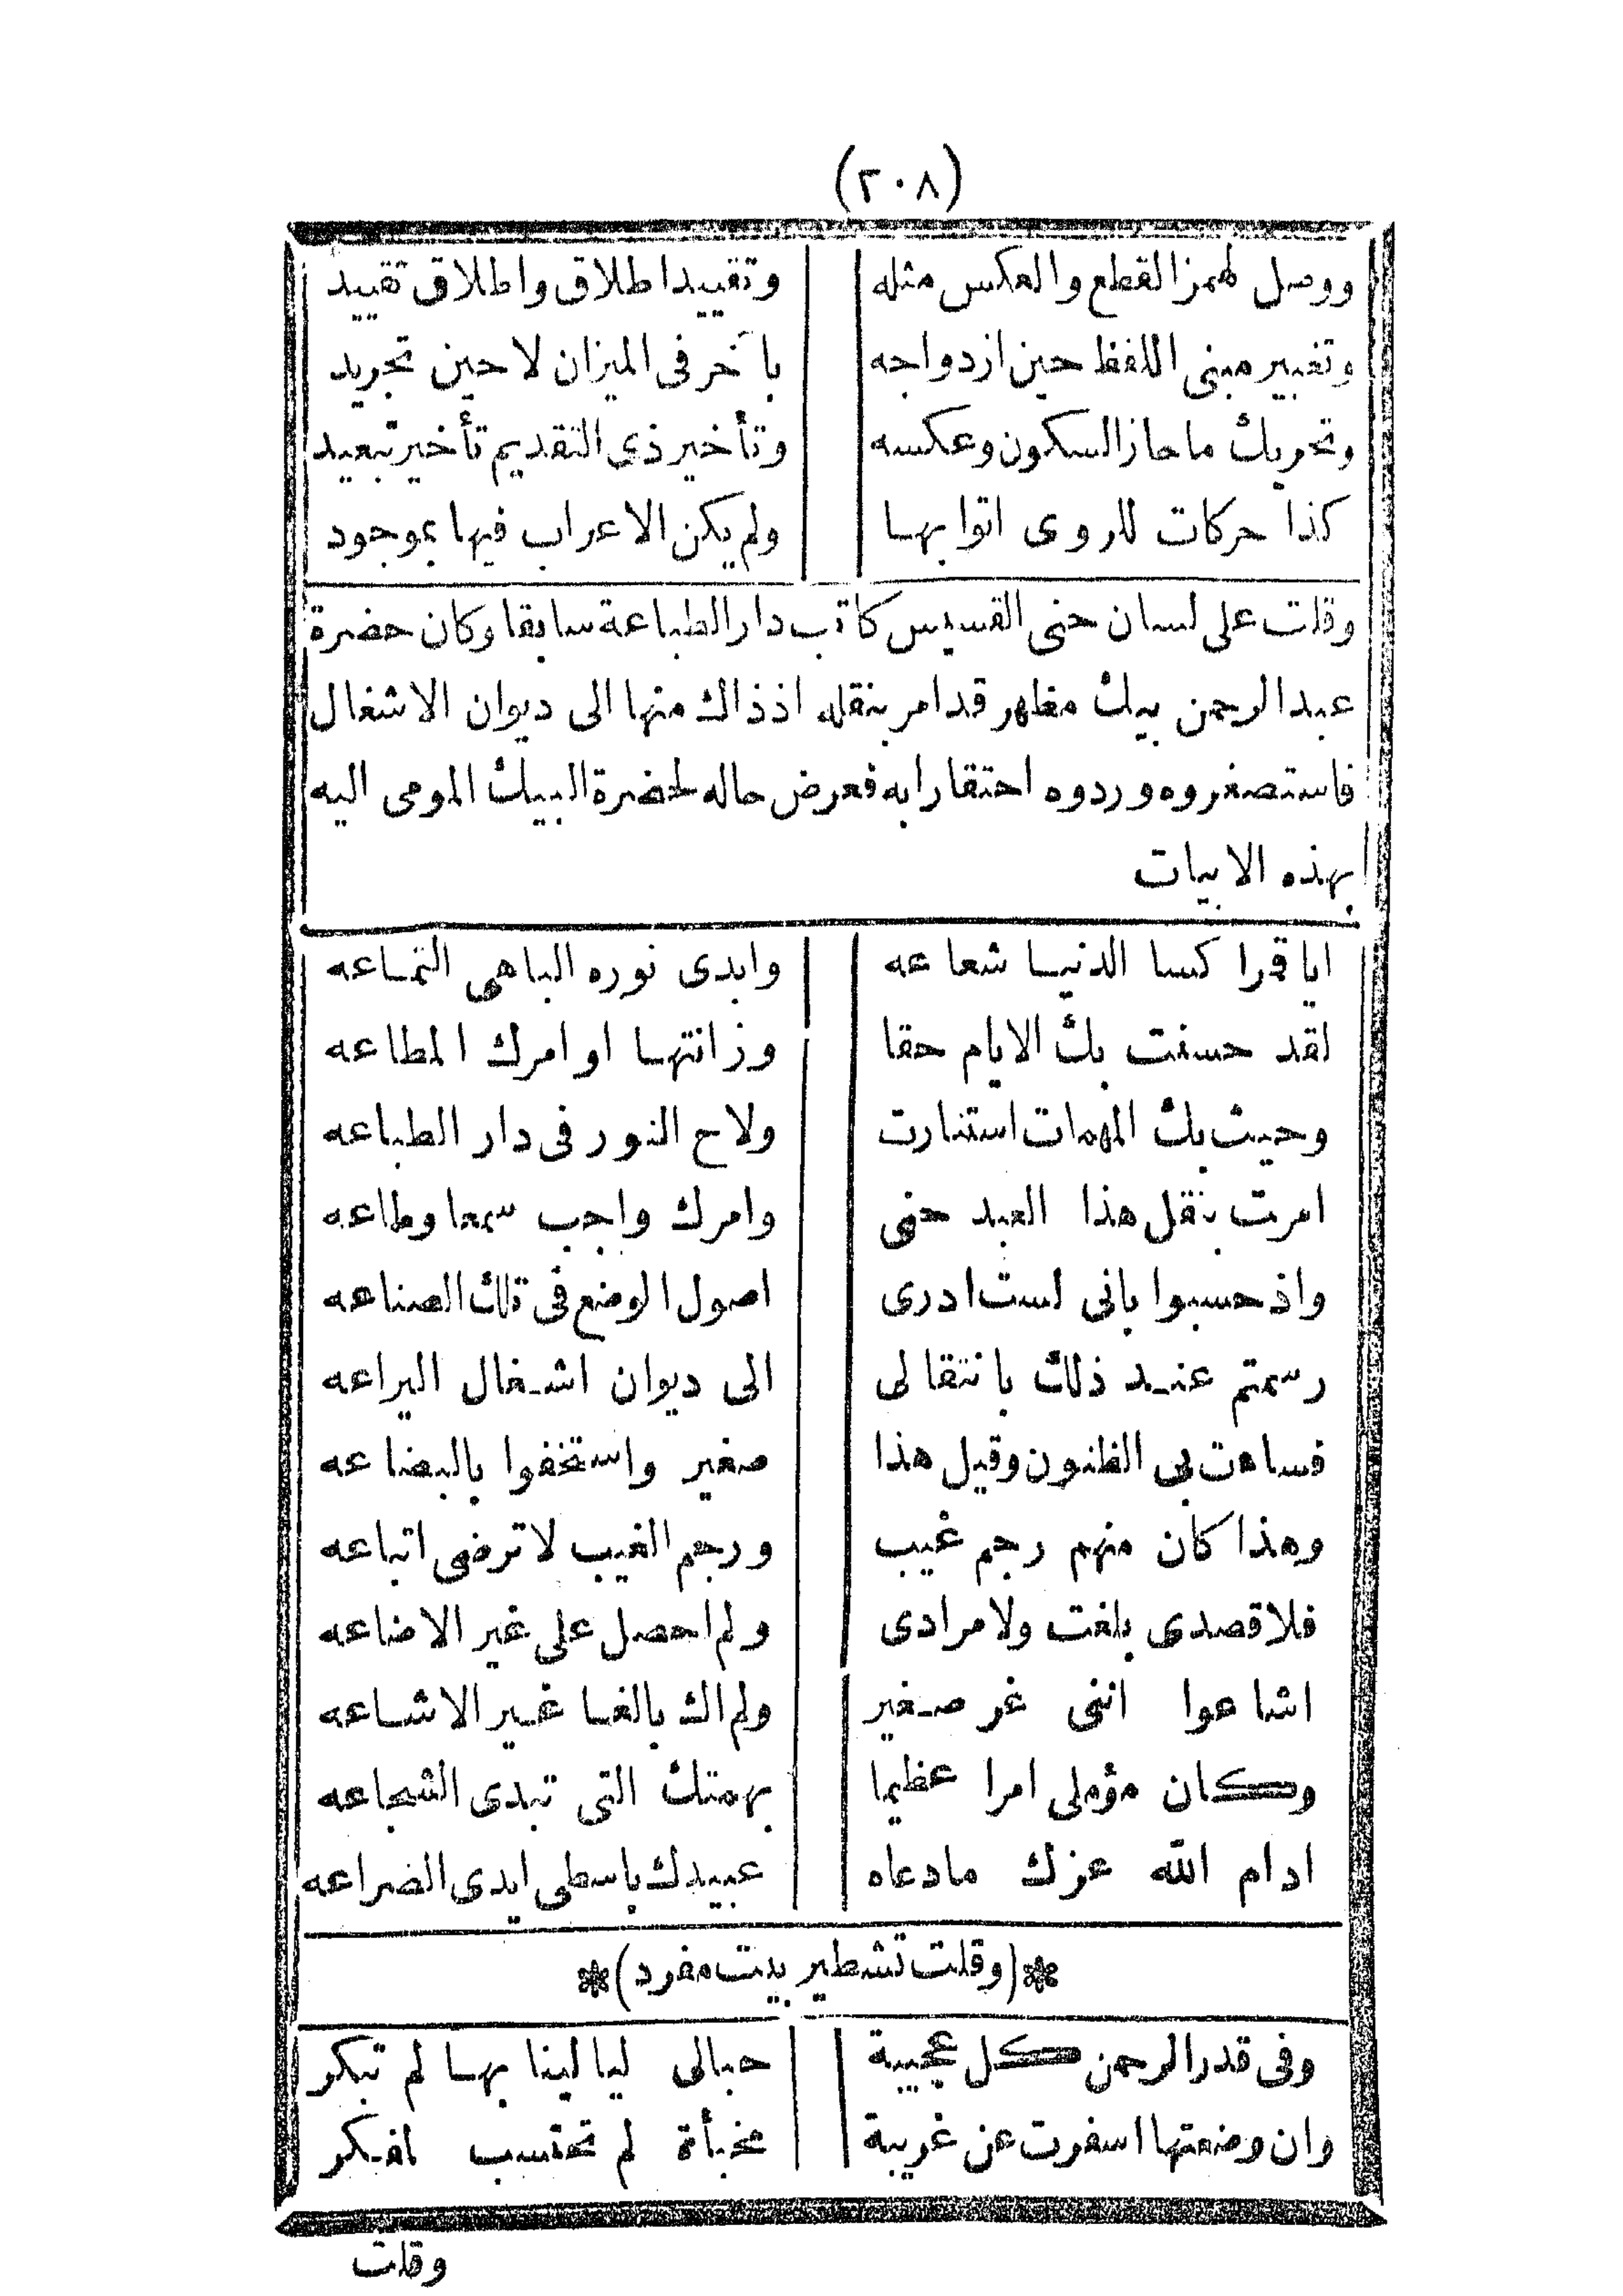 (٢٠٨)
ووصل لهمز القطع والعكس مثله وتقييد اطلاق واطلاق تقييد
وتغيير مبنى اللفظ حين ازدواجه بآخر فى الميزان لا حين تجريد
وتحريك ما حاز السكون وعكسه وتأخير ذى التقديم تأخير تبعيد
كذا حركات للروى اتوا بها ولم يكن الاعراب فيها بموجود
وقلت على لسان حنى القسيس كاتب دار الطباعة سابقا وكان حضرة
عبد الرحمن بيك مظهر قد امر بنقله اذ ذاك منها الى ديوان الاشغال
فاستصغروه وردوه احتقارا به فعرض حاله لحضرة البيك المومى اليه
بهذه الابيات
ايا قمرا كسا الدنيا شعاعه وابدى نوره الباهى التماعه
لقد حسنت بك الايام حقا وزانتها اوامرك المطاعه
وحيث بك المهمات استنارت ولاح النور فى دار الطباعه
امرت بنقل هذا العبد حنى وامرك واجب سمعا وطاعه
واذ حسبوا بانى لست ادرى اصول الوضع فى تلك الصناعه
رسمتم عند ذلك بانتقالى الى ديوان اشغال اليراعه
فساءت بى الظنون وقيل هذا صغير واستخفوا بالبضاعه
وهذا كان منهم رجم غيب ورجم الغيب لا ترضى اتباعه
فلا قصدى بلغت ولا مرادى ولم احصل على غير الاضاعه
اشاعوا اننى غر صغير ولم اك بالغا غير الاشاعه
وكان مؤملى امرا عظيما بهمتك التى تبدى الشجاعه
ادام الله عزك ما دعاه عبيدك باسطى ايدى الضراعه
*(وقلت تشطير بيت مفرد)*
وفى قدر الرحمن كل عجيبة حبالى ليالينا بها لم تبكر
وان وضعتها اسفرت عن غريبة مخبأة لم تحتسب لمفكر
وقلت